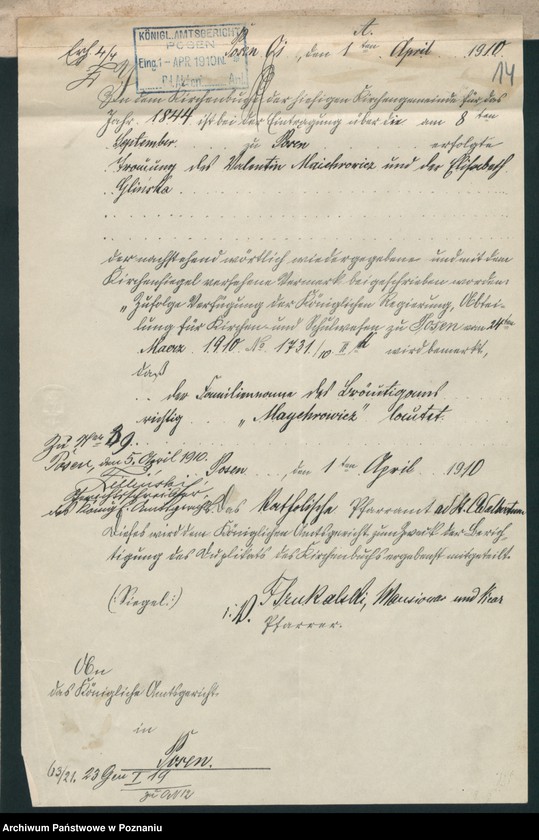 A.
Posen, den 1ten April 1910.
14
KÖNIGL. AMTSBERICHT
POSEN
Eing. 1-APR.1910 N.
In dem Kirchenbuch der hiesigen Kirchengemeinde für das
Jahr 1844 ist bei der Eintragung über die am 8ten
September zu Posen erfolgte
Trauung des Valentin Maichrowicz und der Elisabeth
Glinska
der nachstehend wörtlich wiedergegebene und mit dem
Kirchensiegel versehene Vermerk beigeschrieben worden:
„Zufolge Verfügung der Königlichen Regierung, Abtei-
lung für Kirchen- und Schulwesen zu Posen vom 24ten
Maerz 1910. No. 1731./10 II wird bemerkt,
daß
der Familienname des Bräutigams
richtig „Maychrowicz" lautet.
Zu Nr. 29.
Posen, den 5. April 1910.
Gerichtsschreiber
des Königl. Amtsgerichts
Posen, den 1ten April 1910
Das Katholische Pfarramt ad St. Adalbertum
Dieses wird dem Königlichen Amtsgericht zum Zweck der Berich-
tigung des Duplikats des Kirchenbuchs ergebenst mitgeteilt.
(:Siegel:)
i. V. Mansionar und
Pfarrer.
An
das Königliche Amtsgericht
in
Posen.
63/21. 23 Gen I 19
Archiwum Państwowe w Poznaniu